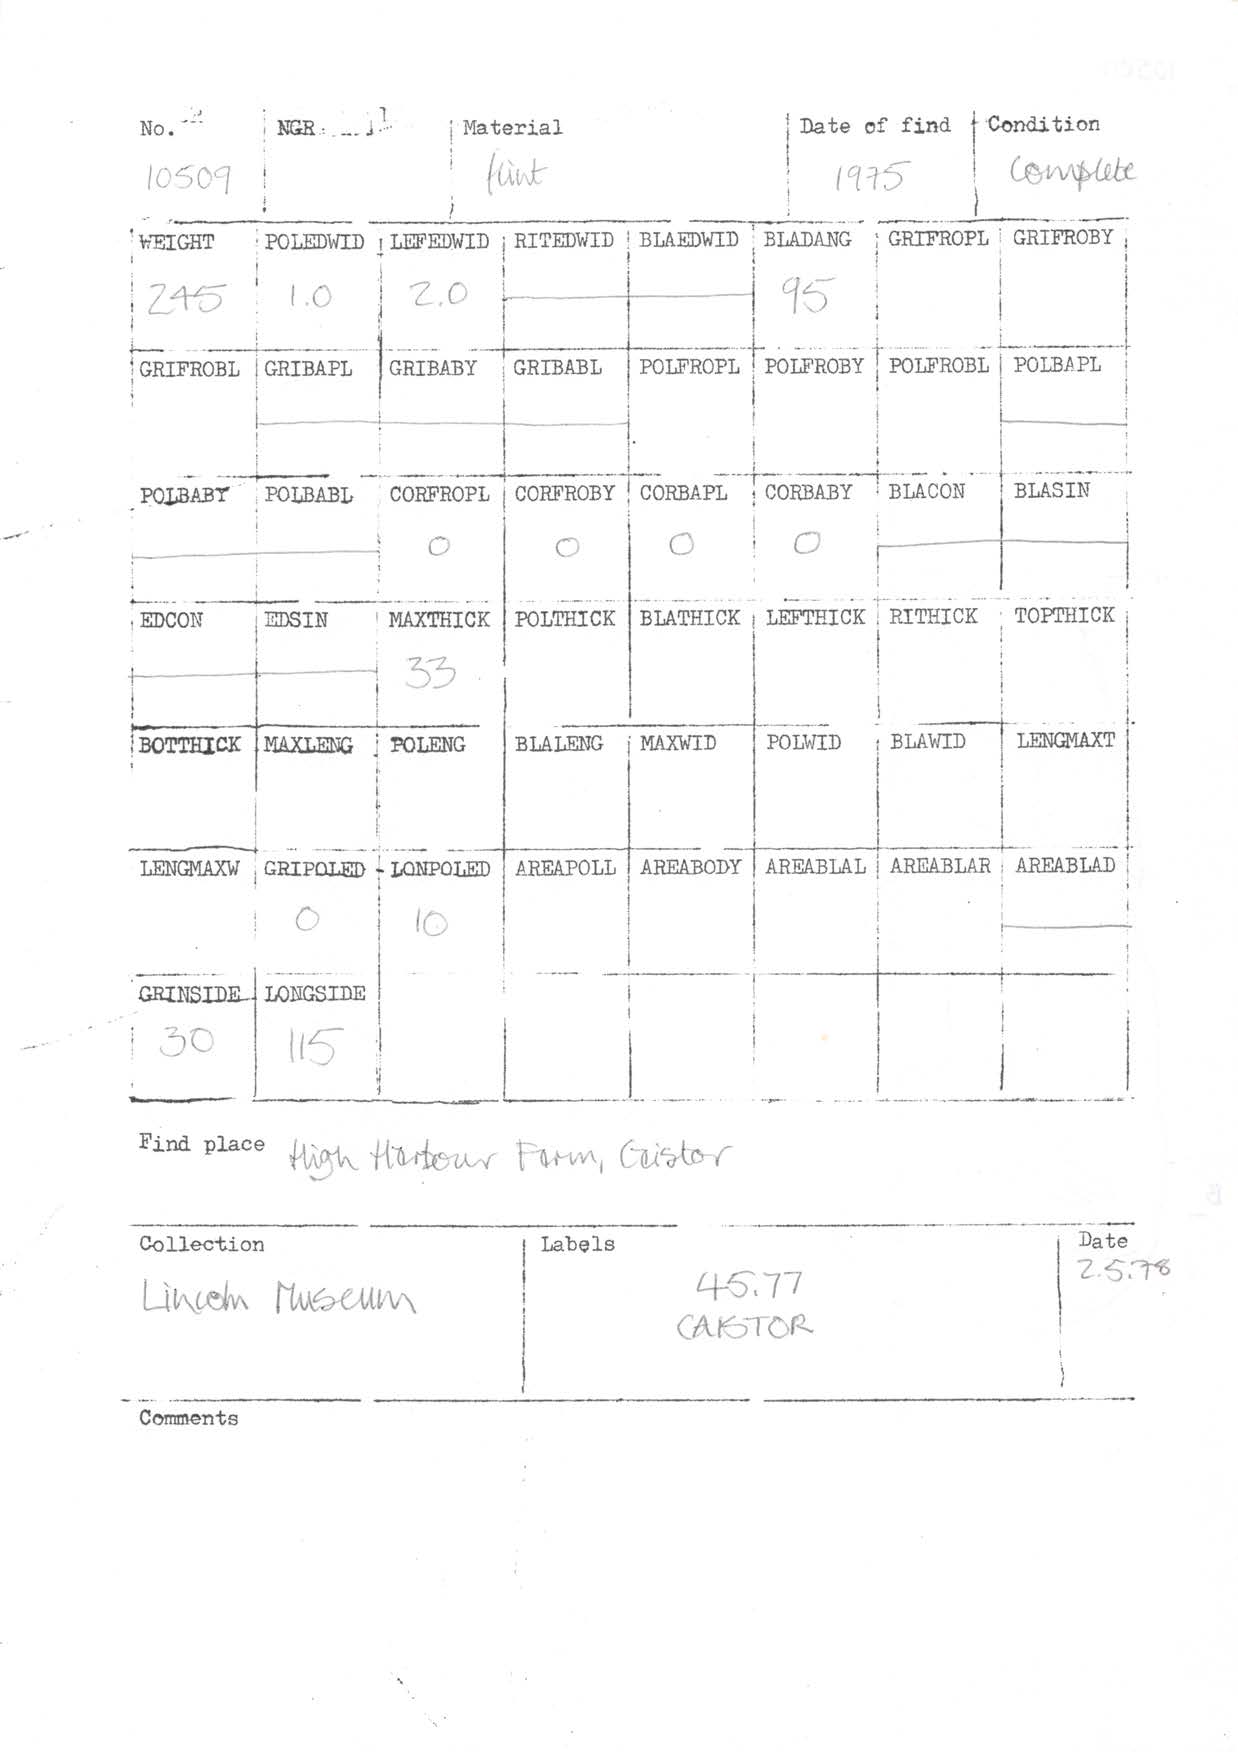 No. NGR Material Date of find Condition
10509 flint 1975 Complete
WEIGHT POLEDWID LEFEDWID RITEDWID BLAEDWID BLADANG GRIFROPL GRIFROBY
245 1.0 2.0 95
GRIFROBL GRIBAPL GRIBABY GRIBABL POLFROPL POLFROBY POLFROBL POLBAPL
POLBABY POLBABL CORFROPL CORFROBY CORBAPL CORBABY BLACON BLASIN
0 0 0 0
EDCON EDSIN MAXTHICK POLTHICK BLATHICK LEFTHICK RITHICK TOPTHICK
33
BOTTHICK MAXLENG POLENG BLALENG MAXWID POLWID BLAWID LENGMAXT
LENGMAXW GRIPOLED LONPOLED AREAPOLL AREABODY AREABLAL AREABLAR AREABLAD
0 10
GRINSIDE LONGSIDE
30 115
Find place High Harbour Farm, Caistor
Collection Labels Date
Lincoln Museum 45.77 2.5.78
CAISTOR
Comments